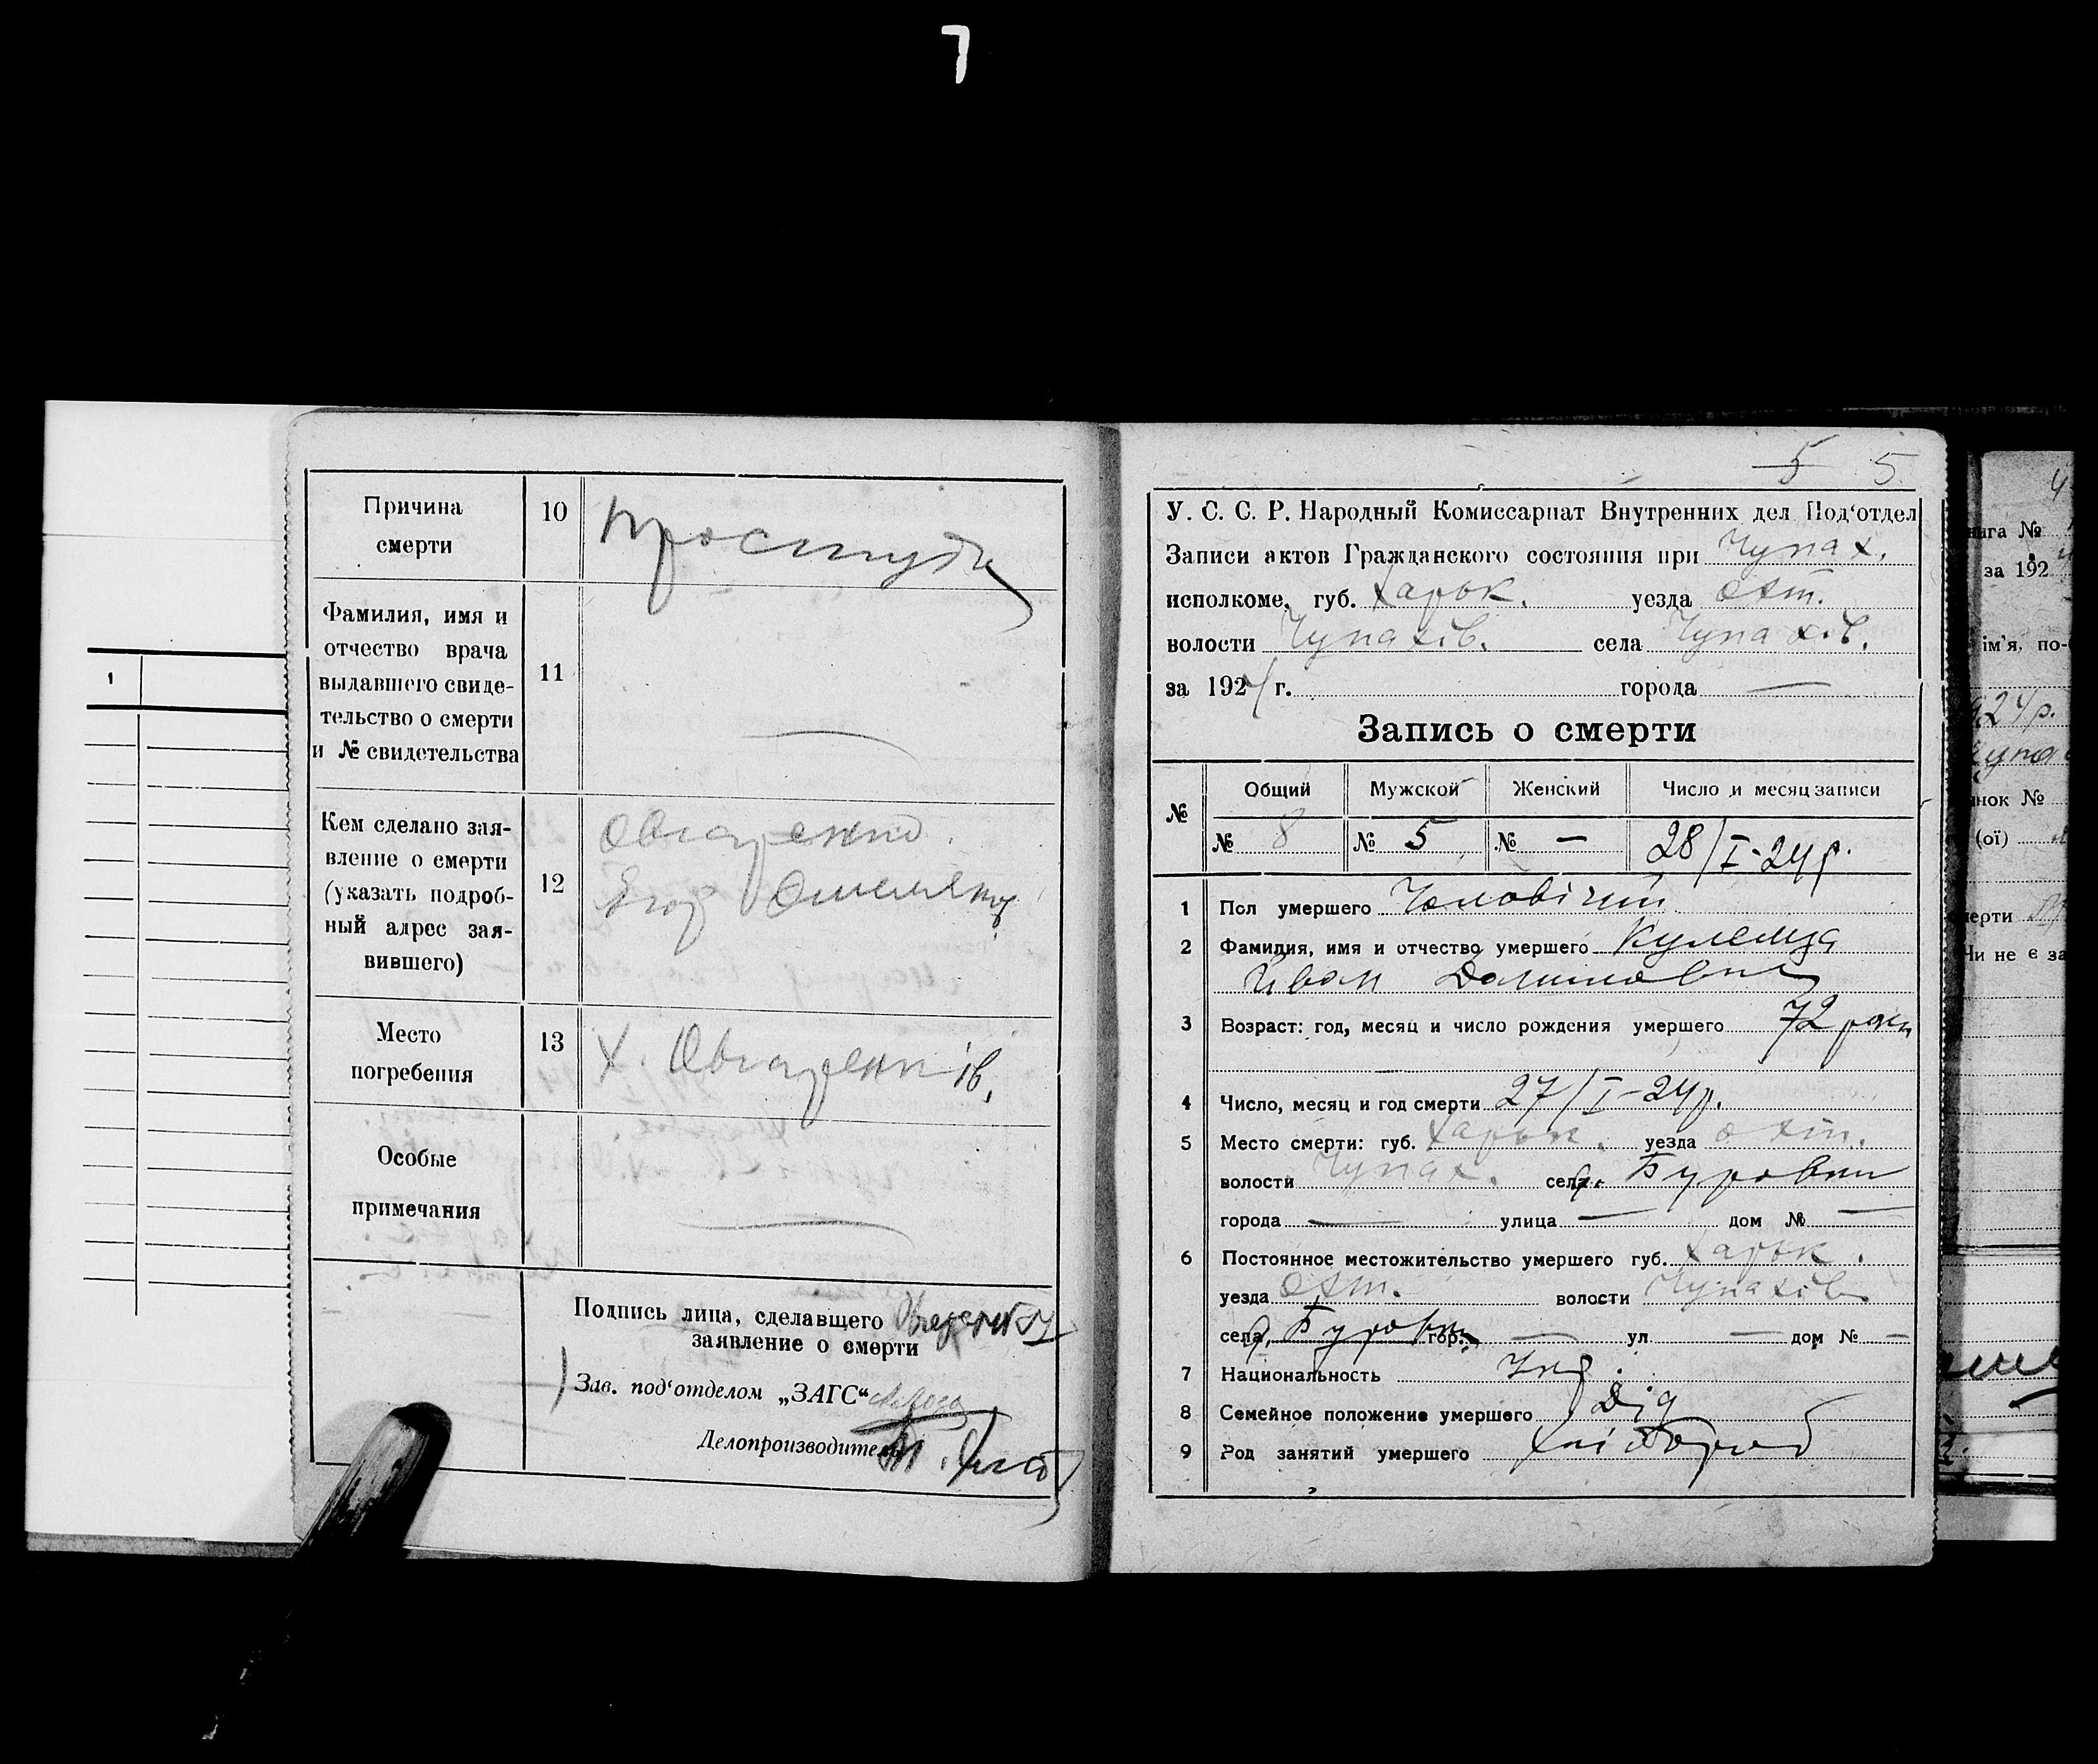 7
Причина
смерти
10
простуда
Фамилия, имя и
отчество врача
выдавшего свиде-
тельство о смерти
и № свидетельства
11
Кем сделано зая-
вление о смерти
(указать подроб-
ный адрес зая-
вившего)
12
Егор
Место
погребения
13
х.
Особые
примечания
Подпись лица, сделавшего
заявление о смерти
Зав. под‘отделом „ЗАГС“
Делопроизводитель
1
5 5
У. С. С. Р. Народный Комиссариат Внутренних дел Под‘отдел
Записи актов Гражданского состояния при Чупах.
исполкоме, губ. Харьк. уезда Охт.
волости Чупахів. села Чупахів.
за 1924 г. города —
Запись о смерти
№ Общий Мужской Женский Число и месяц записи
№ 8 № 5 № — 28/I-24р.
1 Пол умершего Чоловічий
2 Фамилия, имя и отчество умершего Кулемза
Иван
3 Возраст: год, месяц и число рождения умершего 72 роки
4 Число, месяц и год смерти 27/I-24р.
5 Место смерти: губ. Харьк. уезда Охт.
волости Чупах. села х. Буровки
города — улица — дом № —
6 Постоянное местожительство умершего губ. Харьк.
уезда Охт. волости Чупахів.
села х. Буровки гор. — ул — дом № —
7 Национальность Укр.
8 Семейное положение умершего Дід
9 Род занятий умершего Хлібороб
4
нига №
за 192
ім'я, по-
924р.
нок №
(ої)
мерти
Чи не є за